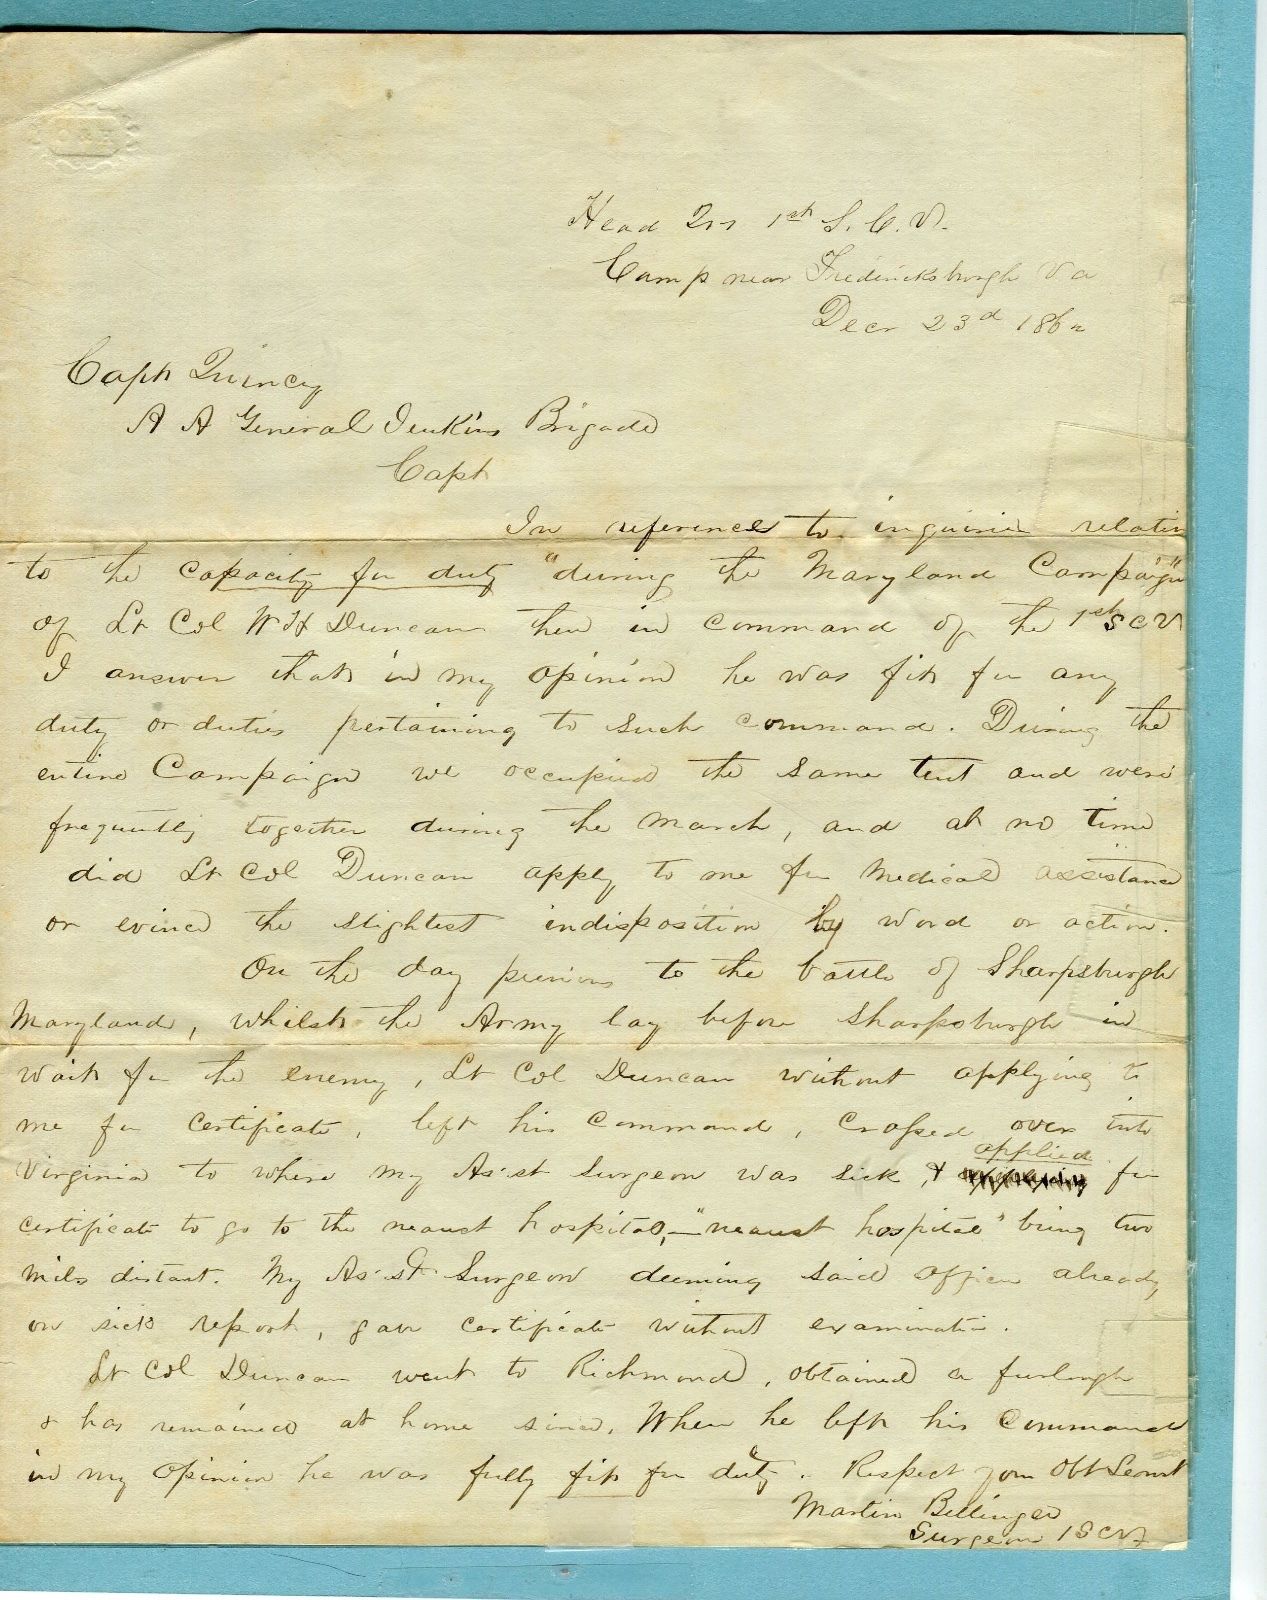 Head Qrs 1st S. C. V.
Camp near Fredericksburgh Va
Decr 23d 1862
Capt Quincy
A A General Jenkins Brigade
Capt
In reference to inquiries relative
to the capacity for duty "during the Maryland Campaign"
of Lt Col W H Duncan then in command of the 1st S C V
I answer that in my opinion he was fit for any
duty or duties pertaining to such command. During the
entire Campaign we occupied the same tent and were
frequently together during the march, and at no time
did Lt Col Duncan apply to me for Medical assistance
or evince the slightest indisposition by word or action.
On the day previous to the battle of Sharpsburgh
Maryland, whilst the Army lay before Sharpsburgh in
wait for the enemy, Lt Col Duncan without applying to
me for certificate, left his command, crossed over into
Virginia to where my Asst Surgeon was sick, & applied for
certificate to go to the nearest hospital, — "nearest hospital" being two
miles distant. My Asst Surgeon deeming said officer already
on sick report, gave certificate without examination.
Lt Col Duncan went to Richmond, obtained a furlough
& has remained at home since. When he left his command
in my opinion he was fully fit for duty. Respect your Obt Servt
Martin Bellinger
Surgeon 1 S C V